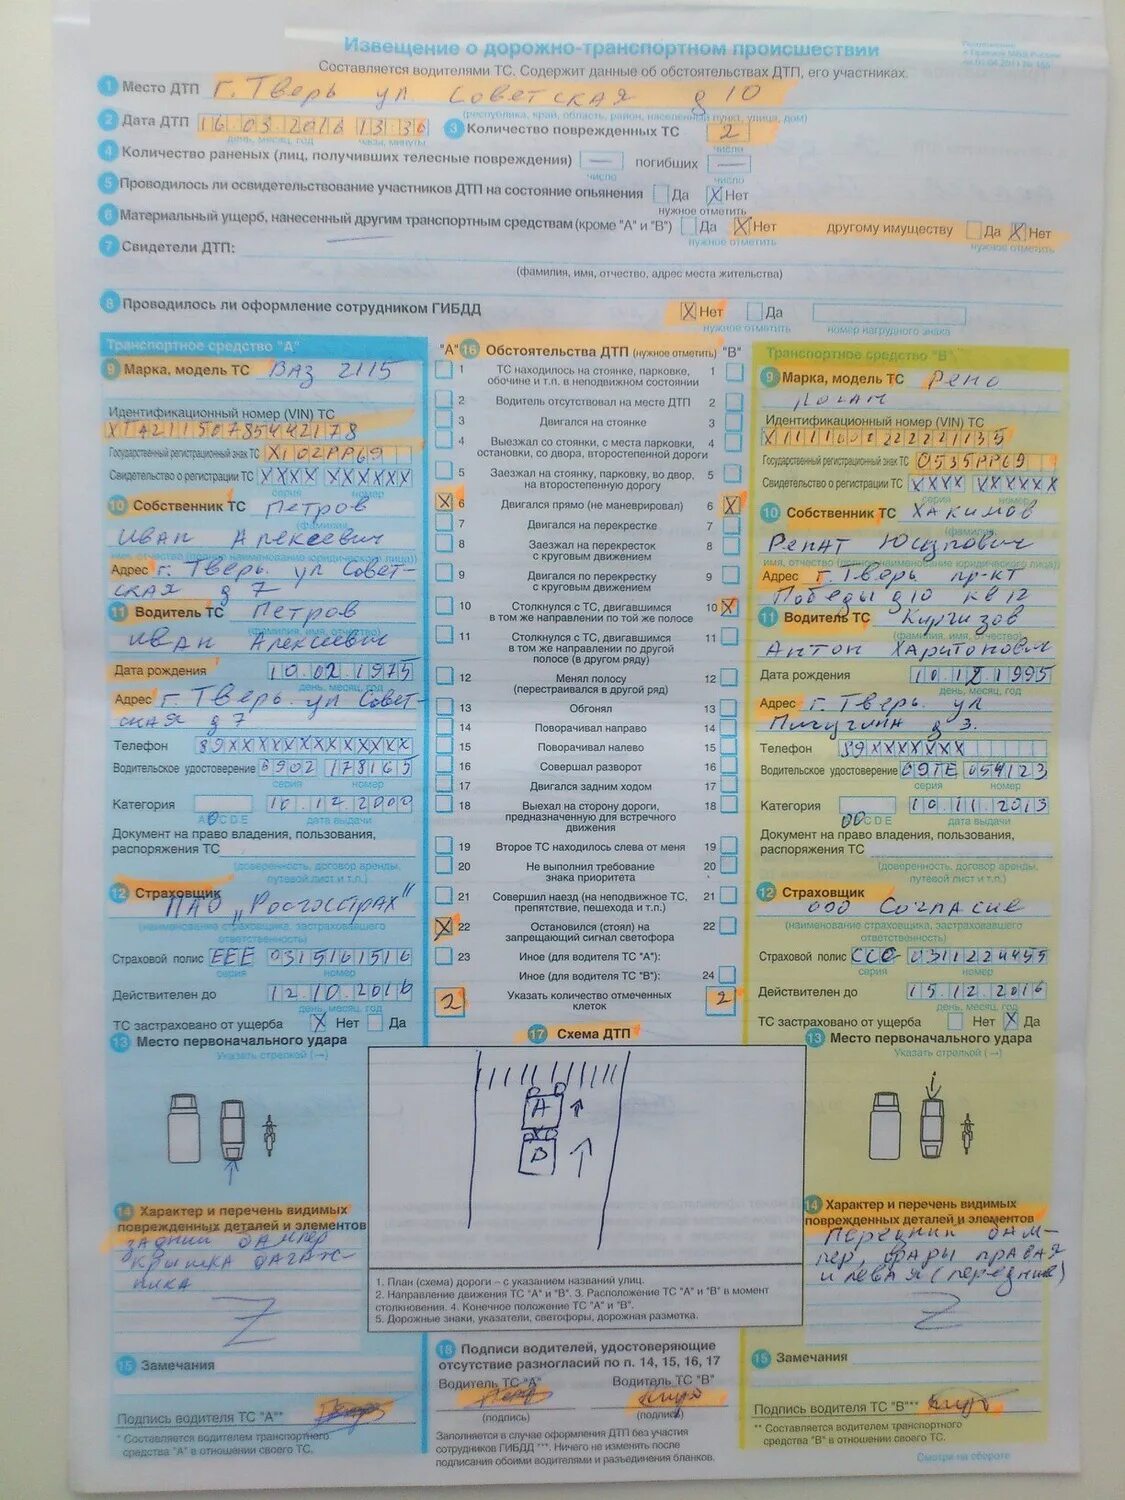 Извещение о дорожно-транспортном происшествии
Составляется водителями ТС. Содержит данные об обстоятельствах ДТП, его участниках.
1 Место ДТП г. Тверь ул Советская д 10
(республика, край, область, район, населенный пункт, улица, дом)
2 Дата ДТП 16.03.2016 13 36 3 Количество поврежденных ТС 2
день, месяц, год часы, минуты число
4 Количество раненых (лиц, получивших телесные повреждения) — погибших —
число число
5 Проводилось ли освидетельствование участников ДТП на состояние опьянения Да X Нет
нужное отметить
6 Материальный ущерб, нанесенный другим транспортным средствам (кроме "А" и "В") Да X Нет другому имуществу Да X Нет
нужное отметить нужное отметить
7 Свидетели ДТП: —
(фамилия, имя, отчество, адрес места жительства)
8 Проводилось ли оформление сотрудником ГИБДД X Нет Да
нужное отметить номер нагрудного знака
Транспортное средство "А"
9 Марка, модель ТС ВАЗ 2115
Идентификационный номер (VIN) ТС
XTA21150785442178
Государственный регистрационный знак ТС Х102РР69
Свидетельство о регистрации ТС XXXX XXXXXX
серия номер
10 Собственник ТС Петров
(фамилия)
Иван Алексеевич
имя, отчество (полное наименование юридического лица))
Адрес г. Тверь ул Совет-
ская д 7
11 Водитель ТС Петров
(фамилия, имя, отчество)
Иван Алексеевич
Дата рождения 10.02.1975
день, месяц, год
Адрес г. Тверь ул Совет-
ская д 7
Телефон 89XXXXXXXXXXXX
Водительское удостоверение 6902 178165
серия номер
Категория 10.12.2000
A B C D E дата выдачи
Документ на право владения, пользования,
распоряжения ТС
(доверенность, договор аренды,
путевой лист и т.п.)
12 Страховщик
ПАО „Росгосстрах"
(наименование страховщика, застраховавшего
ответственность)
Страховой полис ЕЕЕ 0315161516
серия номер
Действителен до 12.10.2016
день, месяц, год
ТС застраховано от ущерба X Нет Да
13 Место первоначального удара
Указать стрелкой (→)
14 Характер и перечень видимых
поврежденных деталей и элементов
задний бампер
крышка багаж-
ника
Z
15 Замечания
Подпись водителя ТС "А"*
* Составляется водителем транспортного
средства "А" в отношении своего ТС.
"А" 16 Обстоятельства ДТП (нужное отметить) "В"
1 ТС находилось на стоянке, парковке,
обочине и т.п. в неподвижном состоянии 1
2 Водитель отсутствовал на месте ДТП 2
3 Двигался на стоянке 3
4 Выезжал со стоянки, с места парковки,
остановки, со двора, второстепенной дороги 4
5 Заезжал на стоянку, парковку, во двор,
на второстепенную дорогу 5
X 6 Двигался прямо (не маневрировал) 6 X
7 Двигался на перекрестке 7
8 Заезжал на перекресток
с круговым движением 8
9 Двигался по перекрестку
с круговым движением 9
10 Столкнулся с ТС, двигавшимся
в том же направлении по той же полосе 10 X
11 Столкнулся с ТС, двигавшимся
в том же направлении по другой
полосе (в другом ряду) 11
12 Менял полосу
(перестраивался в другой ряд) 12
13 Обгонял 13
14 Поворачивал направо 14
15 Поворачивал налево 15
16 Совершал разворот 16
17 Двигался задним ходом 17
18 Выехал на сторону дороги,
предназначенную для встречного
движения 18
19 Второе ТС находилось слева от меня 19
20 Не выполнил требование
знака приоритета 20
21 Совершил наезд (на неподвижное ТС,
препятствие, пешехода и т.п.) 21
X 22 Остановился (стоял) на
запрещающий сигнал светофора 22
23 Иное (для водителя ТС "А"):
Иное (для водителя ТС "В"): 24
2 Указать количество отмеченных
клеток 2
17 Схема ДТП
А
В
1. План (схема) дороги – с указанием названий улиц.
2. Направление движения ТС "А" и "В". 3. Расположение ТС "А" и "В" в момент
столкновения. 4. Конечное положение ТС "А" и "В".
5. Дорожные знаки, указатели, светофоры, дорожная разметка.
18 Подписи водителей, удостоверяющие
отсутствие разногласий по п. 14, 15, 16, 17
Водитель ТС "А" Водитель ТС "В"
(подпись) (подпись)
Заполняется в случае оформления ДТП без участия
сотрудников ГИБДД ***. Ничего не изменять после
подписания обоими водителями и разъединения бланков.
Транспортное средство "В"
9 Марка, модель ТС Рено
Логан
Идентификационный номер (VIN) ТС
Государственный регистрационный знак ТС О535РР69
Свидетельство о регистрации ТС XXXX XXXXXX
серия номер
10 Собственник ТС Хакимов
(фамилия)
Ренат Юсупович
имя, отчество (полное наименование юридического лица))
Адрес г. Тверь пр-кт
Победы д10 кв 12
11 Водитель ТС Киргизов
(фамилия, имя, отчество)
Антон Харитонович
Дата рождения 10.12.1995
день, месяц, год
Адрес г. Тверь ул
Пичугина д 3.
Телефон 89XXXXXXX
Водительское удостоверение 69ТЕ 054123
серия номер
Категория 10.11.2013
C D E дата выдачи
Документ на право владения, пользования,
распоряжения ТС
(доверенность, договор аренды,
путевой лист и т.п.)
12 Страховщик
ООО Согласие
(наименование страховщика, застраховавшего
ответственность)
Страховой полис ССС 0311224455
серия номер
Действителен до 15.12.2016
день, месяц, год
ТС застраховано от ущерба Нет X Да
13 Место первоначального удара
Указать стрелкой (→)
14 Характер и перечень видимых
поврежденных деталей и элементов
Передний бам-
пер, фары правая
и левая (передние)
Z
15 Замечания
Подпись водителя ТС "В"**
** Составляется водителем транспортного
средства "В" в отношении своего ТС.
Смотри на обороте